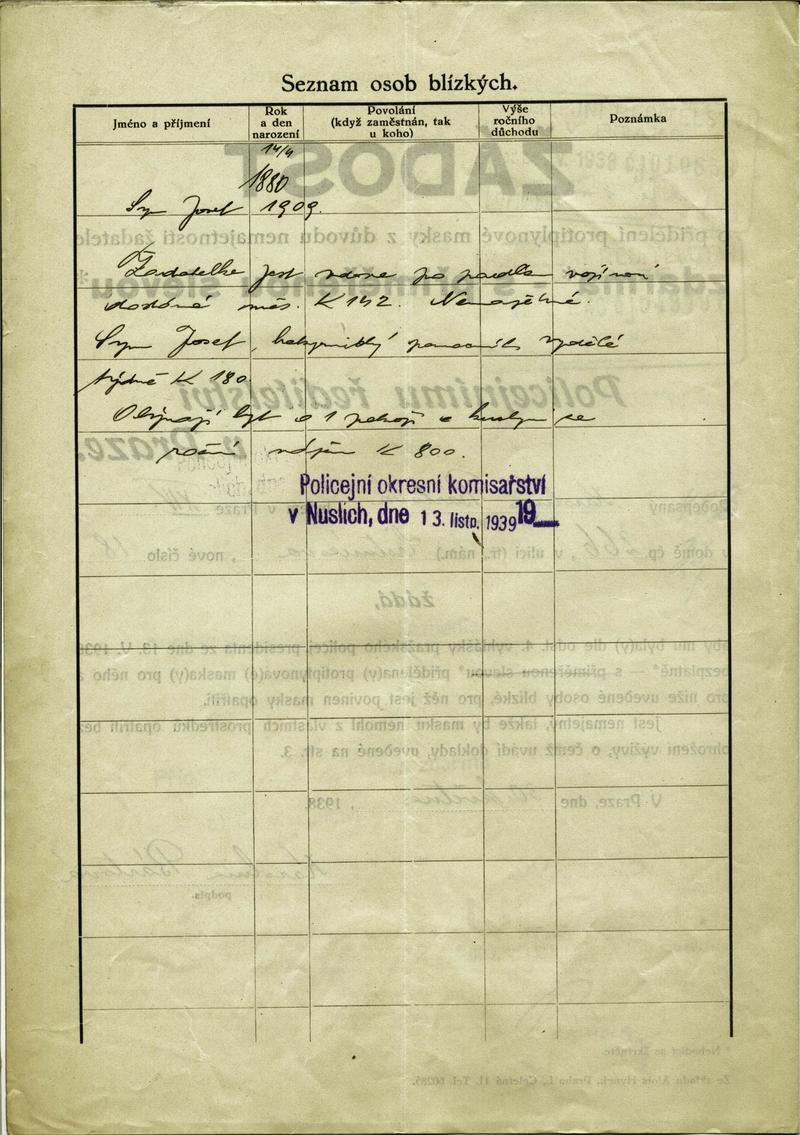 Seznam osob blízkých.
Jméno a příjmení
Rok
a den
narození
Povolání
(když zaměstnán, tak
u koho)
Výše
ročního
důchodu
Poznámka
14/4
1880
Syn Josef 1909.
Žadatelka jest vdova po padlém vojínovi
dostává měs. K 142. Nemajetná.
Syn Josef, pomocník vydělá
týdně K 180.
Obývají byt o 1 pokoji a kuchyni se
roční K 800.
Policejní okresní komisařství
v Nuslích, dne 13. listp. 1939 19